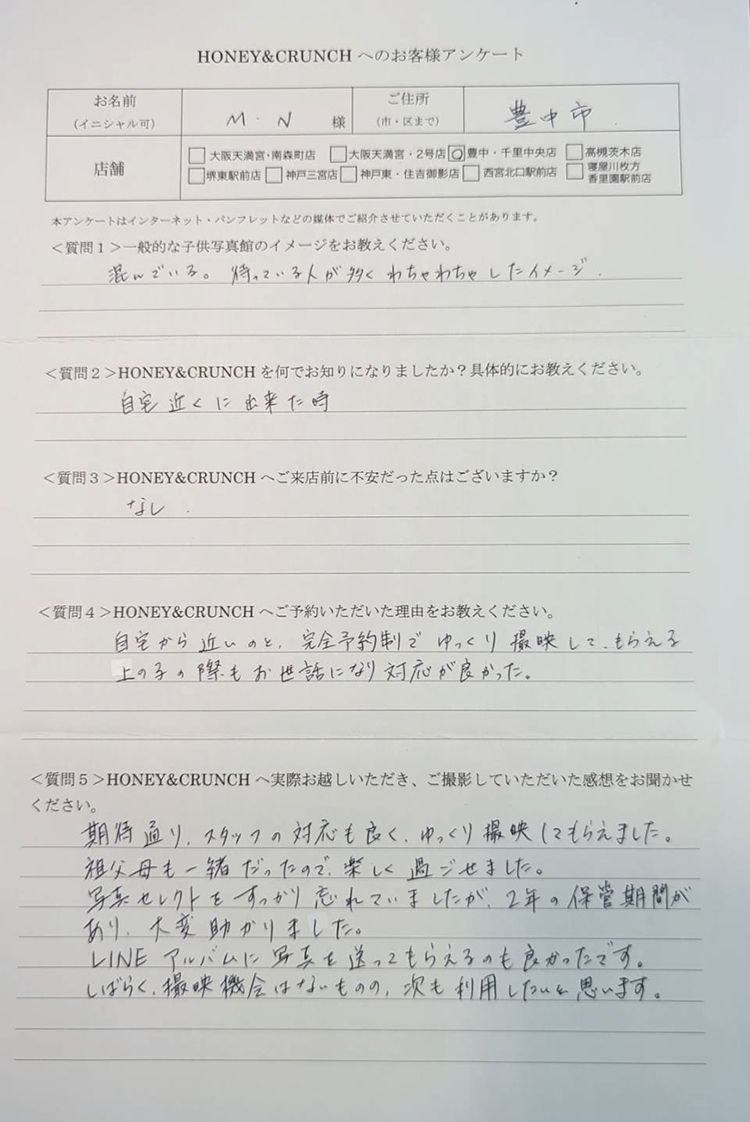 HONEY&CRUNCH へのお客様アンケート
お名前
(イニシャル可)
M・N 様
ご住所
(市・区まで)
豊中市
店舗
大阪天満宮・南森町店 大阪天満宮・2号店 豊中・千里中央店 高槻茨木店
堺東駅前店 神戸三宮店 神戸東・住吉御影店 西宮北口駅前店 寝屋川枚方
香里園駅前店
本アンケートはインターネット・パンフレットなどの媒体でご紹介させていただくことがあります。
<質問1>一般的な子供写真館のイメージをお教えください。
混んでいる。待っている人が多くわちゃわちゃしたイメージ.
<質問2>HONEY&CRUNCH を何でお知りになりましたか?具体的にお教えください。
自宅近くに出来た時
<質問3>HONEY&CRUNCH へご来店前に不安だった点はございますか?
なし.
<質問4>HONEY&CRUNCH へご予約いただいた理由をお教えください。
自宅から近いのと、完全予約制でゆっくり撮映して、もらえる
上の子の際もお世話になり対応が良かった。
<質問5>HONEY&CRUNCH へ実際お越しいただき、ご撮影していただいた感想をお聞かせ
ください。
期待通り、スタッフの対応も良く、ゆっくり撮映してもらえました。
祖父母も一緒だったので、楽しく過ごせました。
写真セレクトをすっかり忘れていましたが、2年の保管期間が
あり、大変助かりました。
LINE アルバムに写真を送ってもらえるのも良かったです。
しばらく、撮映機会はないものの、次も利用したいと思います。